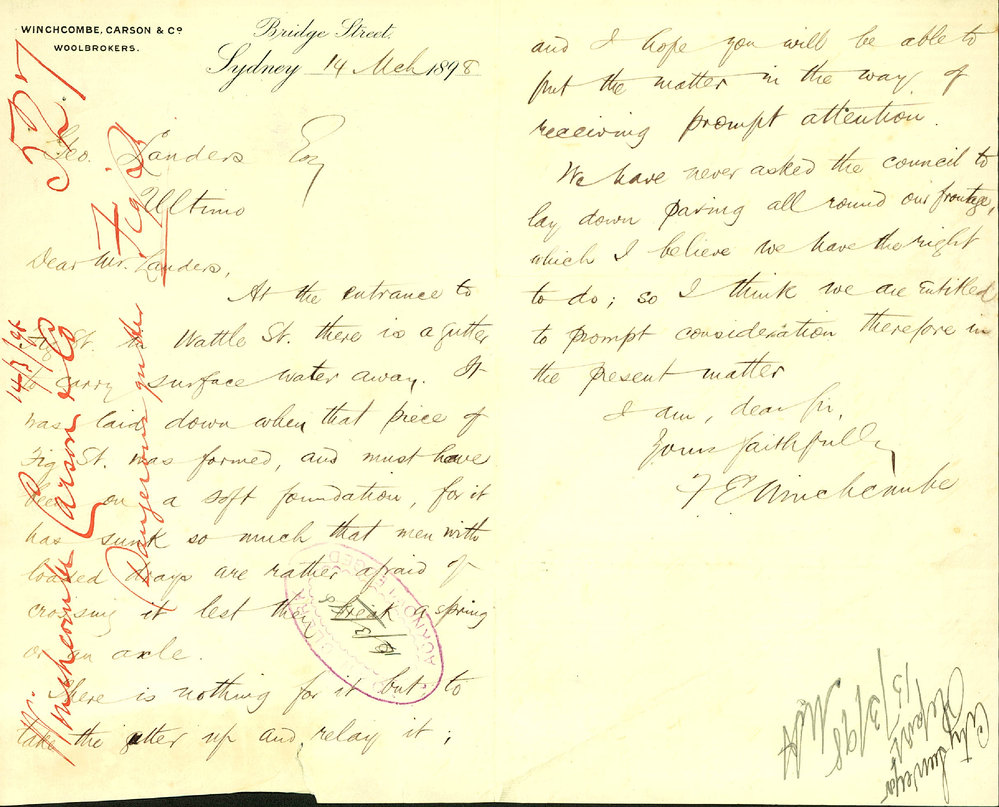 WINCHCOMBE, CARSON & Co
WOOLBROKERS.
Bridge Street.
Sydney 14 Mch 1898
Geo. Landers Esq
Ultimo
Dear Mr. Landers,
At the entrance to
Fig St. in Wattle St. there is a gutter
to carry surface water away. It
was laid down when that piece of
Fig St. was formed, and must have
been on a soft foundation, for it
has sunk so much that men with
loaded drays are rather afraid of
crossing it lest they break a spring
or an axle.
There is nothing for it but to
take the gutter up and relay it;
and I hope you will be able to
put the matter in the way of
receiving prompt attention.
We have never asked the council to
lay down paving all round our frontage,
which I believe we have the right
to do; so I think we are entitled
to prompt consideration therefore in
the present matter
I am, dear Sir,
Yours faithfully
F E Winchcombe
527
14/3/98
Winchcombe Carson & Co
Dangerous gutter
Fig St
ACKNOWLEDGED
15/3/98
City Surveyor
Report
15/3/98